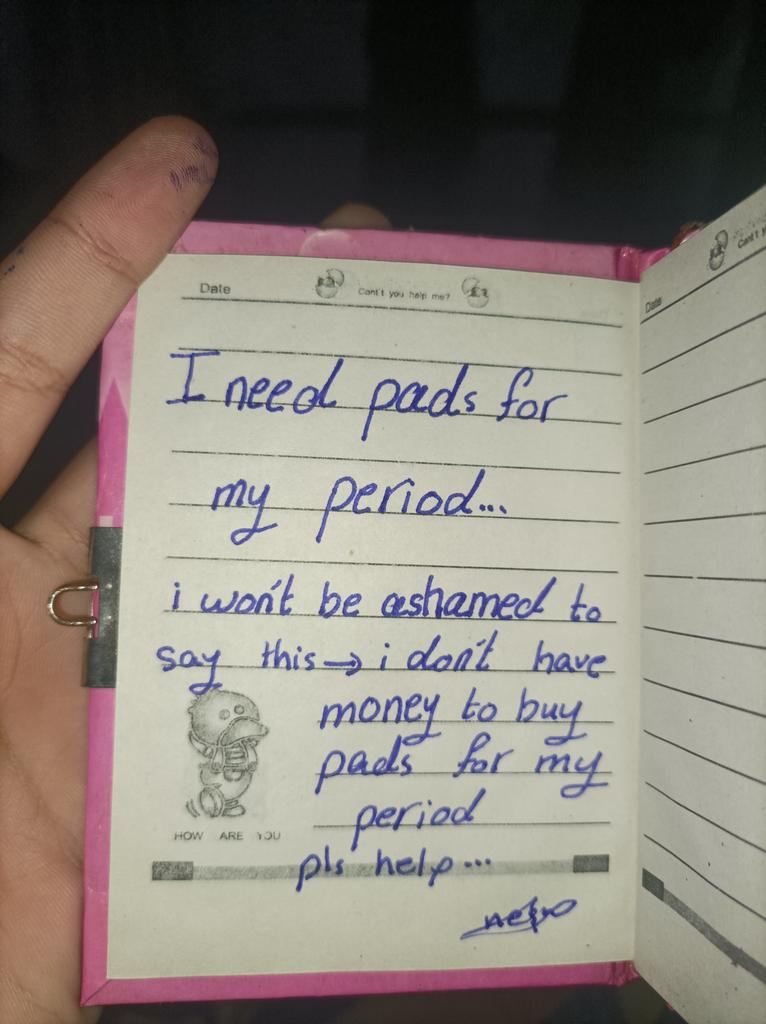 Date Can't you help me?
I need pads for
my period...
i won't be ashamed to
say this → i don't have
money to buy
pads for my
period
HOW ARE YOU
pls help...
Date